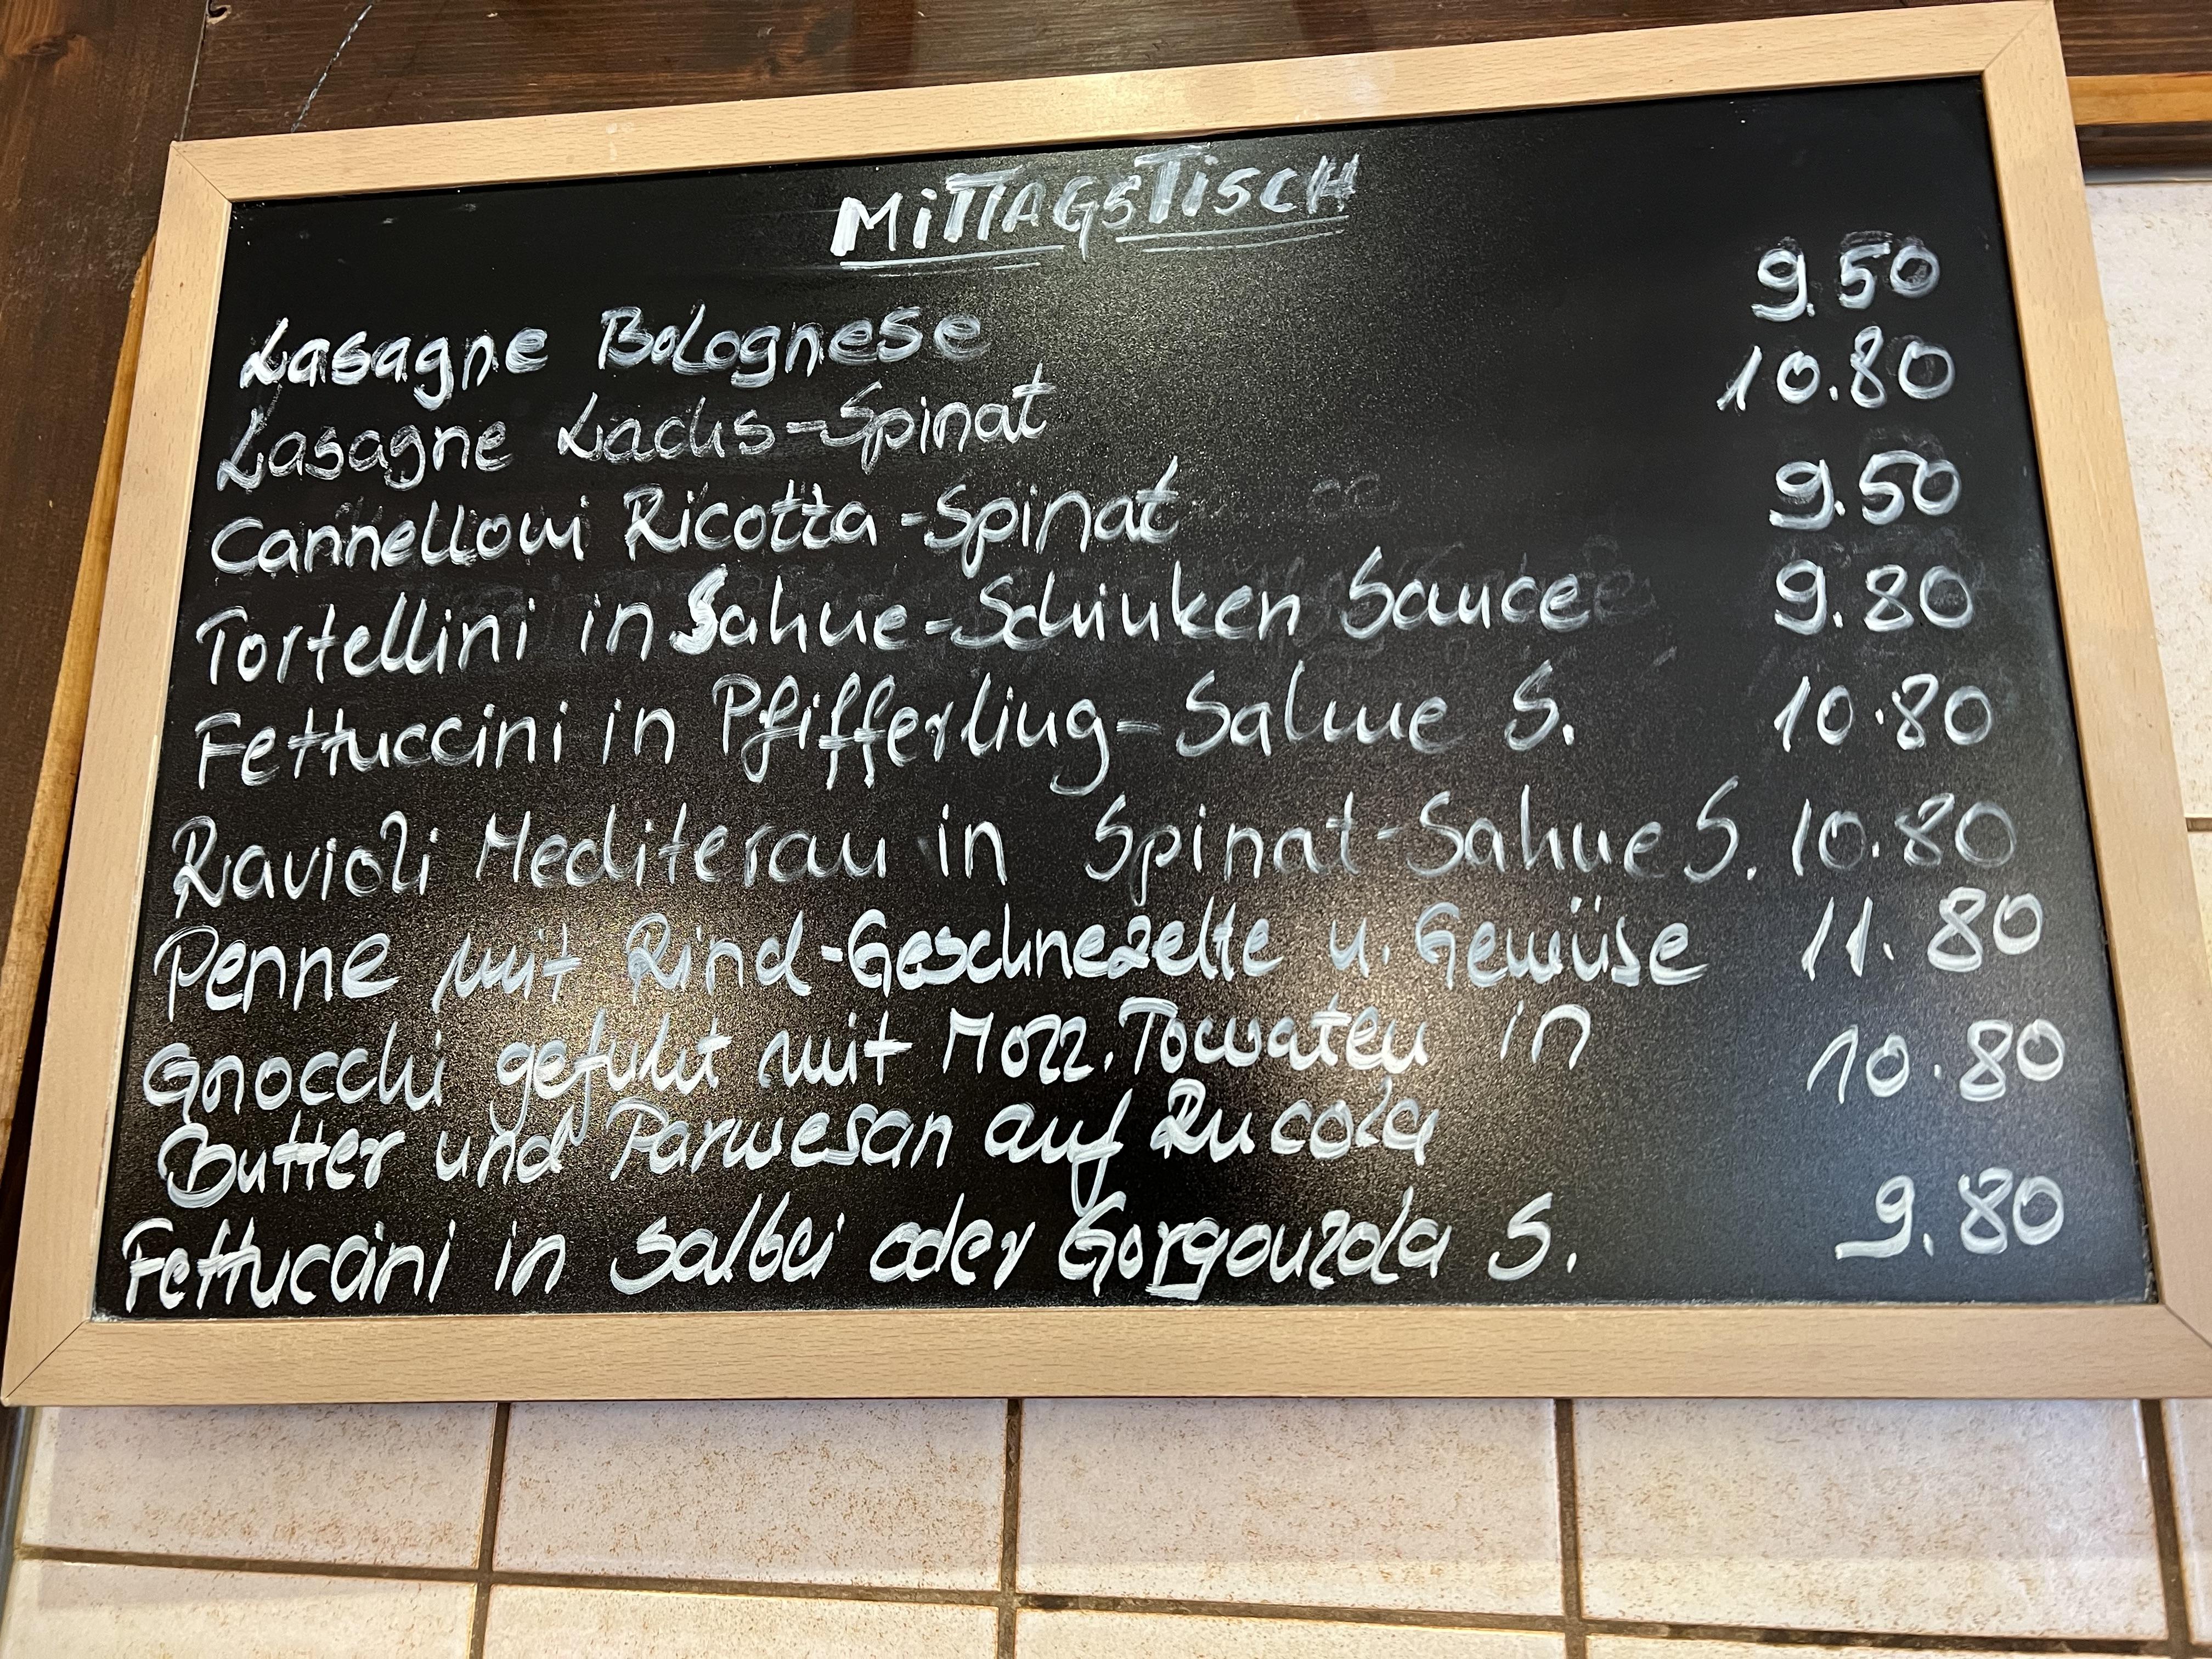 MiTTAGSTiSCH
Lasagne Bolognese 9.50
Lasagne Lachs-Spinat 10.80
Cannelloni Ricotta-Spinat 9.50
Tortellini in Sahne-Schinken Sauce 9.80
Fettuccini in Pfifferling-Sahne S. 10.80
Ravioli Mediteran in Spinat-Sahne S. 10.80
Penne mit Rind-Geschnezelte u. Gewüse 11.80
Gnocchi gefühlt mit Mozz. Tomaten in 10.80
Butter und Parmesan auf Rucola
Fettuccini in Salbei oder Gorgonzola S. 9.80